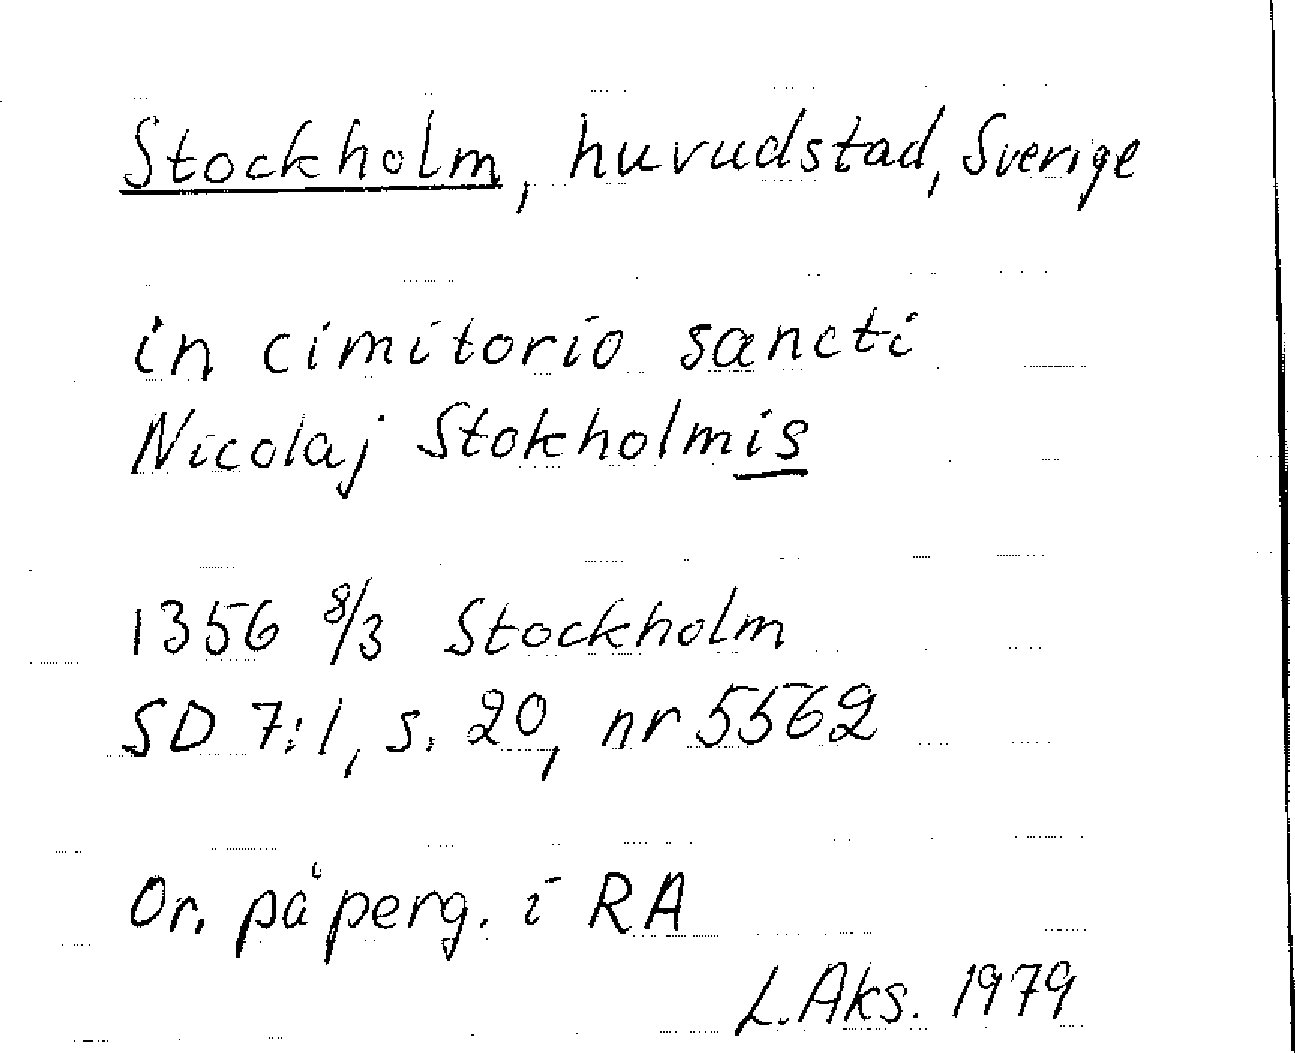 Stockholm, huvudstad, Sverige
in cimitorio sancti
Nicolaj Stokholmis
1356 8/3 Stockholm
SD 7:1, s. 20, nr 5562
Or. på perg. i RA
L. Aks. 1979